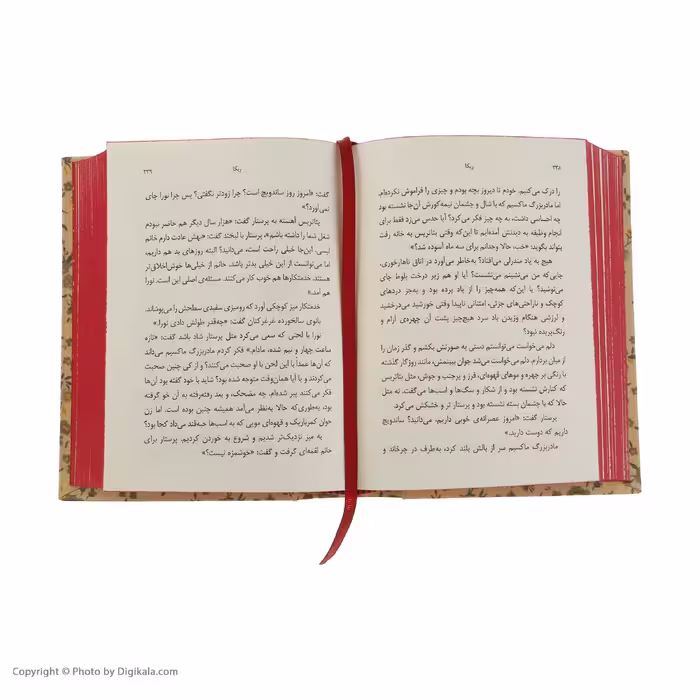 ۲۳۸
ربکا
را درک می‌کنیم. خودم تا دیروز بچه بودم و چیزی را فراموش نکرده‌ام.
اما مادربزرگ ماکسیم که با شال و چشمان نیمه‌کورش آن‌جا نشسته بود
چه احساسی داشت، به چه چیز فکر می‌کرد؟ آیا حدس می‌زد فقط برای
انجام وظیفه به دیدنش آمده‌ایم تا این‌که وقتی بئاتریس به خانه رفت
بتواند بگوید: «خب، حالا وجدانم برای سه ماه آسوده شد؟»
هیچ به یاد مندرلی می‌افتاد؟ به‌خاطر می‌آورد در اتاق ناهارخوری،
جایی‌که من می‌نشینم می‌نشست؟ آیا او هم زیر درخت بلوط چای
می‌نوشید؟ یا این‌که همه‌چیز را از یاد برده بود و به‌جز دردهای
کوچک و ناراحتی‌های جزئی، امتنانی ناپیدا وقتی خورشید می‌درخشید
و لرزشی هنگام وزیدن باد سرد هیچ‌چیز پشت آن چهره‌ی آرام و
رنگ‌پریده نبود؟
دلم می‌خواست می‌توانستم دستی به صورتش بکشم و گذر زمان را
از میان بردارم. دلم می‌خواست می‌شد جوان ببینمش، مانند روزگار گذشته،
با رنگی بر چهره و موهای قهوه‌ای، فرز و پرجنب و جوش، مثل بئاتریس
که کنارش نشسته بود و از شکار و سگ‌ها و اسب‌ها می‌گفت، مثل
حالا که با چشمان بسته نشسته بود و پرستار تر و خشکش می‌کرد.
پرستار گفت: «امروز عصرانه‌ی خوبی داریم، می‌دانید؟ ساندویچ
داریم که دوست دارید.»
مادربزرگ ماکسیم سر از بالش بلند کرد، به‌طرف در چرخاند و
ربکا
۲۳۹
گفت: «امروز روز ساندویچ است؟ چرا زودتر نگفتی؟ پس چرا نورا چای
نمی‌آورد؟»
بئاتریس آهسته به پرستار گفت: «هزار سال دیگر هم حاضر نبودم
شغل شما را داشته باشم.» پرستار با لبخند گفت: «بهش عادت دارم خانم
لیسی. این‌جا خیلی راحت است، می‌دانید؟ البته روزهای بد هم داریم،
اما می‌توانست از این خیلی بدتر باشد. خانم از خیلی‌ها خوش‌اخلاق‌تر
هستند. خدمتکارها هم خوب کار می‌کنند. مسئله‌ی اصلی این است. نورا
هم آمد.»
خدمتکار میز کوچکی آورد که رومیزی سفیدی سطحش را می‌پوشاند.
بانوی سالخورده غرغرکنان گفت: «چه‌قدر طولش دادی نورا.»
نورا با لحنی که سعی می‌کرد مثل پرستار شاد باشد گفت: «تازه
ساعت چهار و نیم شده، مادام.» فکر کردم مادربزرگ ماکسیم می‌داند
که آن‌ها عمداً با این لحن با او صحبت می‌کنند؟ و از کی چنین صحبت
می‌کردند و یا آیا همان‌وقت متوجه شده بود؟ شاید با خود گفته بود آن‌ها
فکر می‌کنند پیر شده‌ام، چه مضحک، و بعد رفته‌رفته به آن خو گرفته
بود، به‌طوری‌که حالا به‌نظر می‌آمد همیشه چنین بوده است. اما زن
جوان کمرباریک و قهوه‌ای مویی که به اسب‌ها حبه‌قند می‌داد کجا بود؟
به میز نزدیک‌تر شدیم و شروع به خوردن کردیم. پرستار برای
خانم لقمه‌ای گرفت و گفت: «خوشمزه نیست؟»
Copyright © Photo by Digikala.com